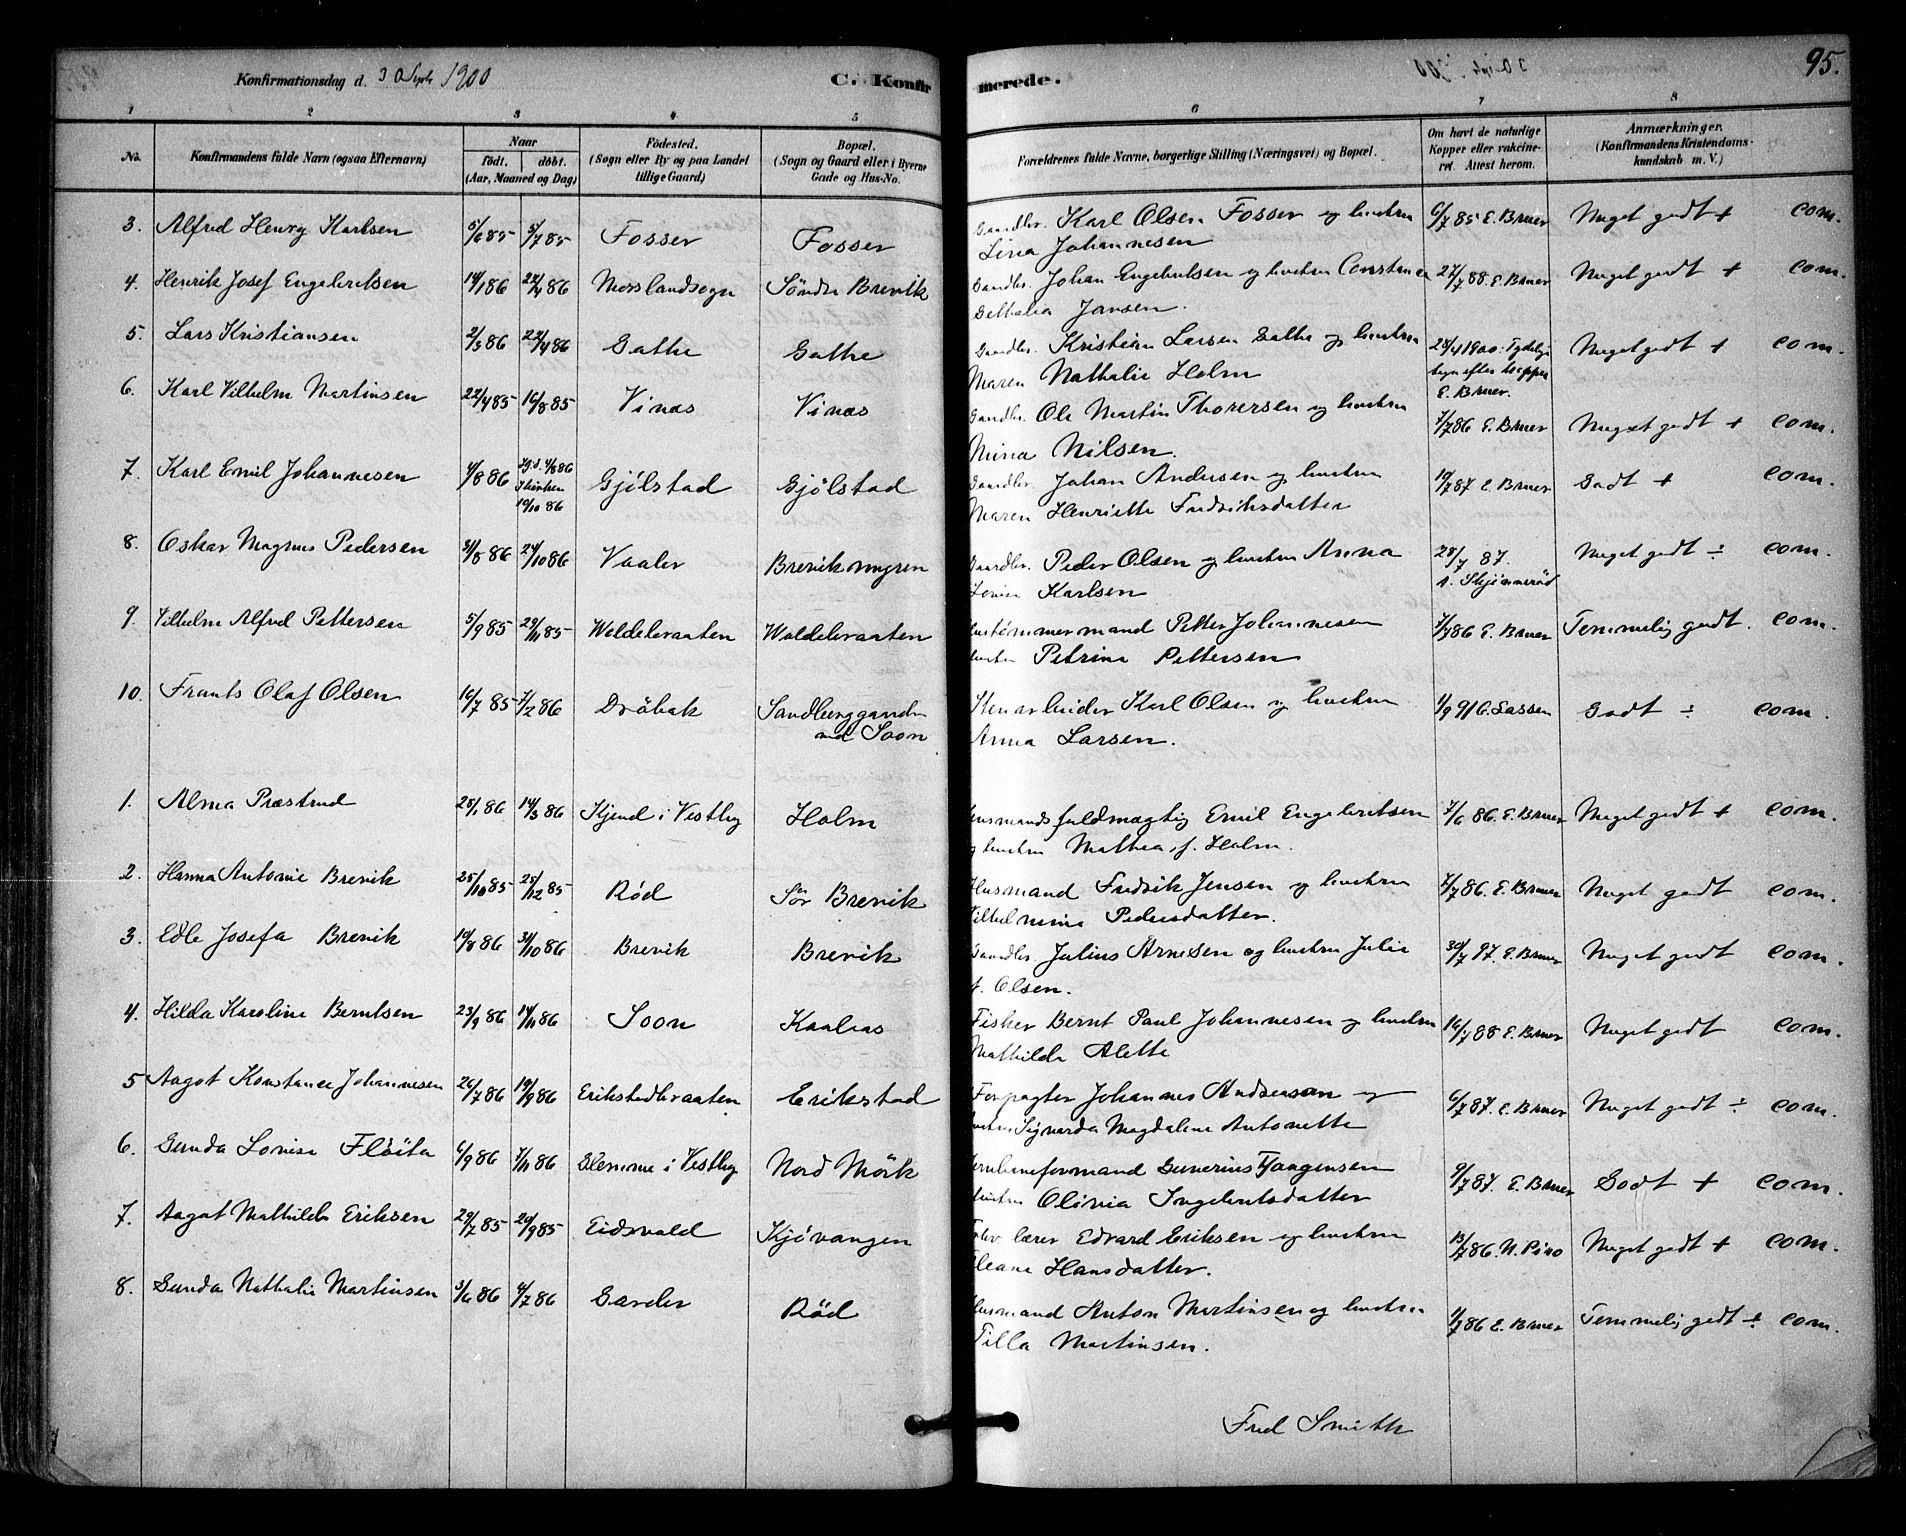 Konfirmationsdag d. 30 Septr 1900
C. Konfirmerede.
95.
1 2 3 4 5 6 7 8
No.
Konfirmandens fulde Navn (ogsaa Efternavn)
Naar
født. døbt.
(Aar, Maaned og Dag)
Fødested.
(Sogn eller By og paa Landet
tillige Gaard)
Bopæl.
(Sogn og Gaard eller i Byerne
Gade og Hus-No.
Forældrenes fulde Navne, borgerlige Stilling (Næringsvei) og Bopæl.
Om havt de naturlige
Kopper eller vakcine-
ret. Attest herom.
Anmærkninger.
(Konfirmandens Kristendoms-
kundskab m. V.)
3. Alfred Henry Karlsen 5/6 85 5/7 85 Fosser Fosser Gaardbr. Karl Olsen Fosser og hustru 6/7 85 E. Bruer Meget godt + com.
Lina Johannesen
4. Henrik Josef Engebretsen 14/1 86 22/4 86 Søndre Brevik Gaardbr. Johan Engebretsen og hustru Constance 27/7 88. E. Bruer Meget godt + com.
Jansen.
5. Lars Kristiansen 2/3 86 22/4 86 Galhe Galhe Gaardbr. Kristian Larsen Galhe og hustru 28/4 1900. Tydelige Meget godt + com.
Maren Nathalie Holm tegn efter kopper
E. Bruer.
6. Karl Vilhelm Martinsen 22/4 85 16/8 85 Vinæs Vinæs Gaardbr. Ole Martin Thorersen og hustru 1/7 86 E. Bruer Meget godt + com.
Mina Nilsen.
7. Karl Emil Johannesen 4/8 86 4/8 86 Gjølstad Gjølstad Gaardbr. Johan Andersen og hustru 19/7 87 E. Bruer Godt + com.
i kirken
10/10 86
Maren Henriette Fredriksdatter
8. Oskar Magnus Pedersen 31/8 86 24/10 86 Vaaler Brevikmyren Gaardbr. Peder Olsen og hustru Anna 28/7 87. Meget godt ÷ com.
Lovise Karlsen A. Skjønnerød
9. Vilhelm Alfred Pettersen 5/9 85 29/11 85 Woldebraaten Woldebraaten Hustømmermand Petter Johannesen 7/7 86 E. Bruer Temmelig godt. com.
hustru Petrine Pettersen
10. Frants Olaf Olsen 16/7 85 7/2 86 Drøbak Sandberggaarden Stenarbeider Karl Olsen og hustru 1/9 91 C. Lassen Godt ÷ com.
ved Soon
Anna Larsen.
1. Alma Præstrud 28/1 86 14/3 86 Kjend i Vestby Holm Lensmandsfuldmægtig Emil Engebretsen 7/6 86. E. Bruer Meget godt + com.
og hustru Mathea f. Holm.
2. Hanna Antonie Brevik 25/10 85 25/12 85 Rød Sør Brevik Husmand Fredrik Jensen og hustru 7/7 86. E. Bruer Meget godt com.
Vilhelmine Pedersdatter.
3. Edle Josefa Brevik 19/8 86 31/10 86 Brevik Brevik Gaardbr. Julius Arnesen og hustru Julie 30/7 97. E. Bruer Meget godt com.
f. Olsen.
4. Hilda Karoline Berntsen 23/9 86 14/11 86 Soon Kaalaas Fisker Bernt Paul Johannesen og hustru 16/7 88 E. Bruer Meget godt com.
Mathilde Alette
5 Aagot Konstance Johannesen 26/7 86 19/9 86 Erikstadbraaten Erikstad Forpagter Johannes Andreasson og 6/7 87. E. Bruer Meget godt ÷ com.
hustru Signarda Magdalene Antonette
6. Gunda Lovise Fløita 6/9 86 7/11 86 Glemme i Vestby Nord Mørk Jernbaneformand Gunerius Haagensen 9/7 87. E. Bruer Godt + com.
hustru Olivia Ingebretsdatter
7. Aagot Mathilde Eriksen 29/7 85 20/9 85 Eidsvold Kjøvangen lærer Edvard Eriksen og hustru 13/7 86. Meget godt + com.
Eleane Hansdatter.
8. Gunda Nathalie Martinsen 3/6 86 4/7 86 Garder Rød Husmand Anton Martinsen og hustru 1/7 86 E. Bruer Temmelig godt ÷ com.
Tilla Martinsen.
Fred Smith